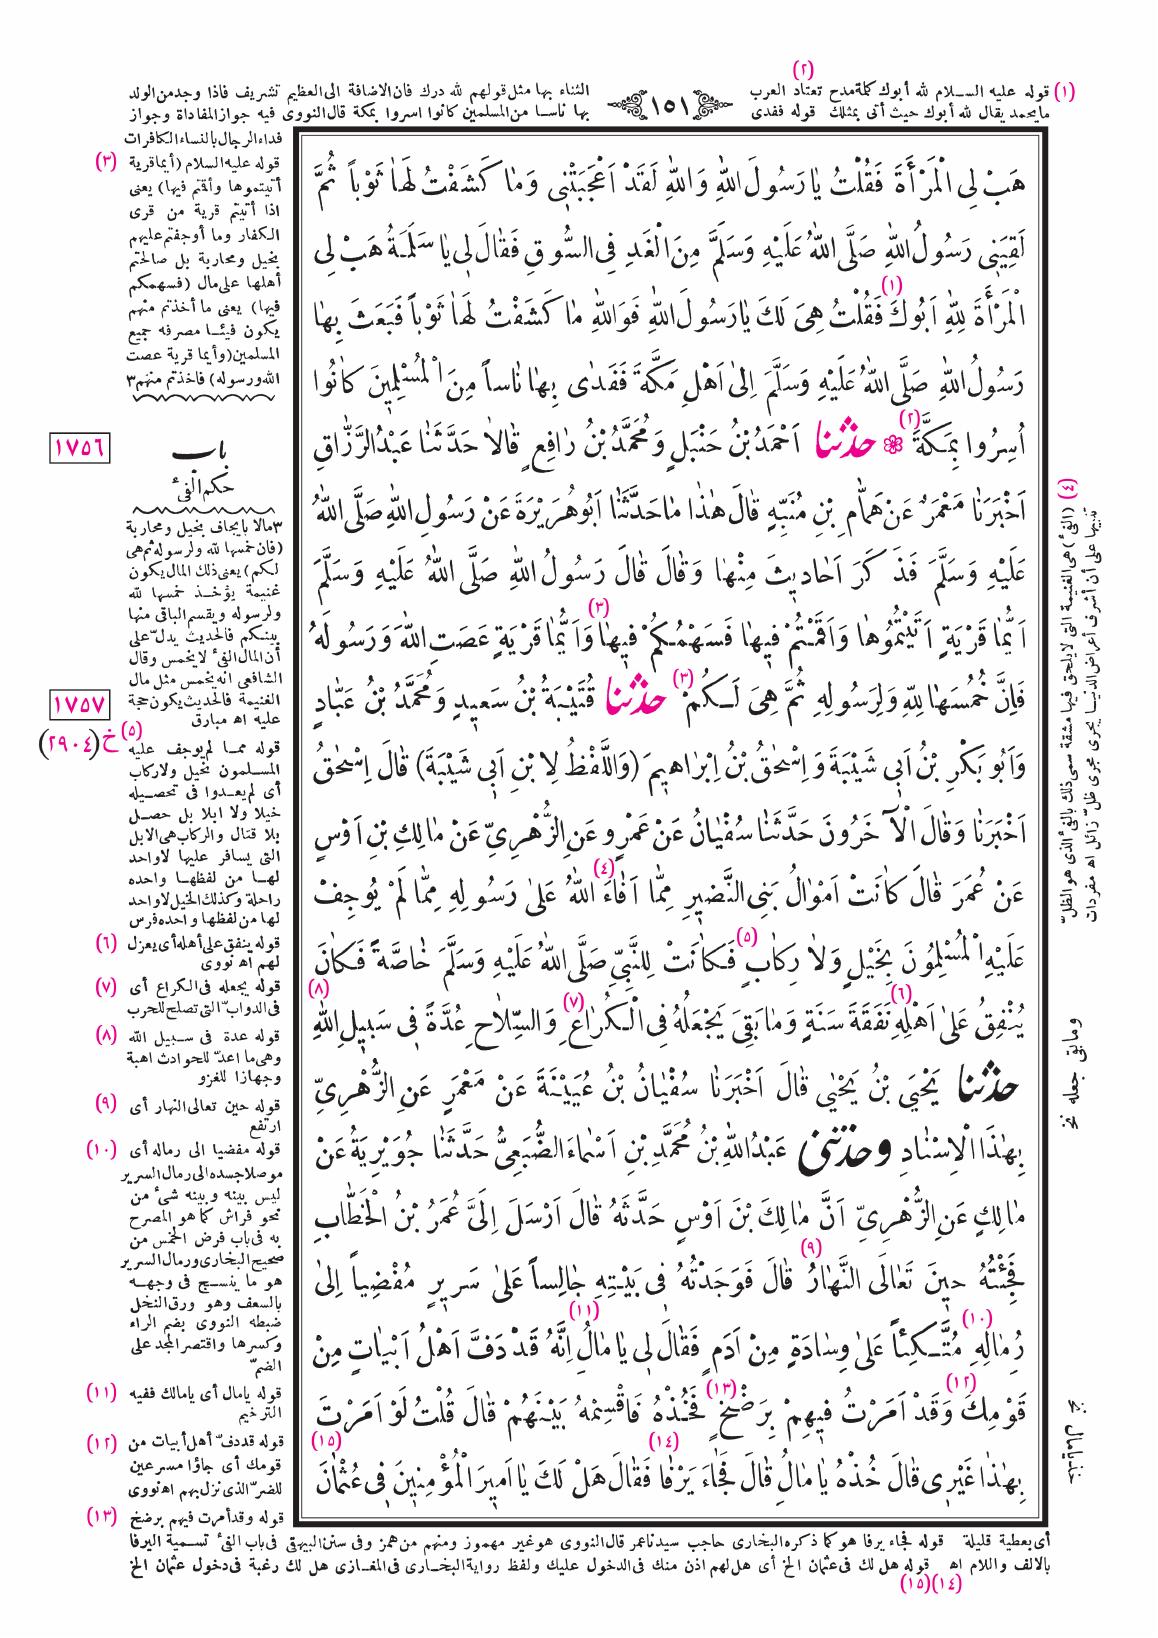 (٢)
(١) قوله عليه السلام لله أبوك كلمة مدح تعتاد العرب
مايحمد يقال لله أبوك حيث أتى بمثلك قوله ففدى
١٥١
الثناء بها مثل قولهم لله درك فان الاضافة الى العظيم تشريف فاذا وجد من الولد
بها ناسا من المسلمين كانوا اسروا بمكة قال النووى فيه جواز المفاداة وجواز
فداء الرجال بالنساء الكافرات
هَبْ لِى الْمَرْأَةَ فَقُلْتُ يَا رَسُولَ اللهِ وَاللهِ لَقَدْ اَعْجَبَتْنِى وَمَا كَشَفْتُ لَهَا ثَوْباً ثُمَّ
لَقِيَنِى رَسُولُ اللهِ صَلَّى اللهُ عَلَيْهِ وَسَلَّمَ مِنَ الْغَدِ فِى السُّوقِ فَقَالَ لِى يَا سَلَمَةُ هَبْ لِى
الْمَرْأَةَ لِلّٰهِ اَبُوكَ (١) فَقُلْتُ هِىَ لَكَ يَا رَسُولَ اللهِ فَوَاللهِ مَا كَشَفْتُ لَهَا ثَوْباً فَبَعَثَ بِهَا
رَسُولُ اللهِ صَلَّى اللهُ عَلَيْهِ وَسَلَّمَ اِلَى اَهْلِ مَكَّةَ فَفَدَى بِهَا نَاساً مِنَ الْمُسْلِمِينَ كَانُوا
اُسِرُوا بِمَكَّةَ (٢) ❀ حدثنا اَحْمَدُ بْنُ حَنْبَلٍ وَمُحَمَّدُ بْنُ رَافِعٍ قَالَا حَدَّثَنَا عَبْدُ الرَّزَّاقِ
اَخْبَرَنَا مَعْمَرٌ عَنْ هَمَّامِ بْنِ مُنَبِّهٍ قَالَ هٰذَا مَا حَدَّثَنَا اَبُو هُرَيْرَةَ عَنْ رَسُولِ اللهِ صَلَّى اللهُ
عَلَيْهِ وَسَلَّمَ فَذَكَرَ اَحَادِيثَ مِنْهَا وَقَالَ قَالَ رَسُولُ اللهِ صَلَّى اللهُ عَلَيْهِ وَسَلَّمَ
اَيُّمَا قَرْيَةٍ اَتَيْتُمُوهَا وَاَقَمْتُمْ فِيهَا فَسَهْمُكُمْ فِيهَا (٣) وَاَيُّمَا قَرْيَةٍ عَصَتِ اللهَ وَرَسُولَهُ
فَاِنَّ خُمُسَهَا لِلّٰهِ وَلِرَسُولِهِ ثُمَّ هِىَ لَكُمْ (٣) حدثنا قُتَيْبَةُ بْنُ سَعِيدٍ وَمُحَمَّدُ بْنُ عَبَّادٍ
وَاَبُو بَكْرِ بْنُ اَبِى شَيْبَةَ وَاِسْحٰقُ بْنُ اِبْرَاهِيمَ (وَاللَّفْظُ لِابْنِ اَبِى شَيْبَةَ) قَالَ اِسْحٰقُ
اَخْبَرَنَا وَقَالَ الْآخَرُونَ حَدَّثَنَا سُفْيَانُ عَنْ عَمْرٍو عَنِ الزُّهْرِىِّ عَنْ مَالِكِ بْنِ اَوْسٍ
عَنْ عُمَرَ قَالَ كَانَتْ اَمْوَالُ بَنِى النَّضِيرِ مِمَّا اَفَاءَ (٤) اللهُ عَلَى رَسُولِهِ مِمَّا لَمْ يُوجِفْ
عَلَيْهِ الْمُسْلِمُونَ بِخَيْلٍ وَلَا رِكَابٍ (٥) فَكَانَتْ لِلنَّبِىِّ صَلَّى اللهُ عَلَيْهِ وَسَلَّمَ خَاصَّةً فَكَانَ
يُنْفِقُ عَلَى اَهْلِهِ (٦) نَفَقَةَ سَنَةٍ وَمَا بَقِىَ يَجْعَلُهُ فِى الْكُرَاعِ (٧) وَالسِّلَاحِ عُدَّةً فِى سَبِيلِ اللهِ (٨)
حدثنا يَحْيَى بْنُ يَحْيَى قَالَ اَخْبَرَنَا سُفْيَانُ بْنُ عُيَيْنَةَ عَنْ مَعْمَرٍ عَنِ الزُّهْرِىِّ
بِهٰذَا الْاِسْنَادِ وحدثنى عَبْدُ اللهِ بْنُ مُحَمَّدِ بْنِ اَسْمَاءَ الضُّبَعِىُّ حَدَّثَنَا جُوَيْرِيَةُ عَنْ
مَالِكٍ عَنِ الزُّهْرِىِّ اَنَّ مَالِكَ بْنَ اَوْسٍ حَدَّثَهُ قَالَ اَرْسَلَ اِلَىَّ عُمَرُ بْنُ الْخَطَّابِ
فَجِئْتُهُ حِينَ تَعَالَى النَّهَارُ (٩) قَالَ فَوَجَدْتُهُ فِى بَيْتِهِ جَالِساً عَلَى سَرِيرٍ مُفْضِياً اِلَى
رُمَالِهِ (١٠) مُتَّكِئاً عَلَى وِسَادَةٍ مِنْ اَدَمٍ فَقَالَ لِى يَا مَالُ (١١) اِنَّهُ قَدْ دَفَّ اَهْلُ اَبْيَاتٍ مِنْ
قَوْمِكَ (١٢) وَقَدْ اَمَرْتُ فِيهِمْ بِرَضْخٍ (١٣) فَخُذْهُ فَاقْسِمْهُ بَيْنَهُمْ قَالَ قُلْتُ لَوْ اَمَرْتَ
بِهٰذَا غَيْرِى قَالَ خُذْهُ يَا مَالُ قَالَ فَجَاءَ يَرْفَا (١٤) فَقَالَ هَلْ لَكَ يَا اَمِيرَ الْمُؤْمِنِينَ فِى عُثْمَانَ (١٥)
(٣) قوله عليه السلام (أيما قرية
أتيتموها وأقمتم فيها) يعنى
اذا أتيتم قرية من قرى
الكفار وما أوجفتم عليهم
بخيل ومحاربة بل صالحتم
أهلها على مال (فسهمكم
فيها) يعنى ما أخذتم منهم
يكون فيئا مصرفه جميع
المسلمين (وأيما قرية عصت
الله ورسوله) فاخذتم منهم ٣
١٧٥٦
باب
حكم الفىء
٣ مالا بايجاف بخيل ومحاربة
(فان خمسها لله ولرسوله ثم هى
لكم) يعنى ذلك المال يكون
غنيمة يؤخذ خمسها لله
ولرسوله ويقسم الباقى منها
بينكم فالحديث يدلّ على
أن المال الفىء لا يخمس وقال
الشافعى انه يخمس مثل مال
الغنيمة فالحديث يكون حجة
عليه اه مبارق
١٧٥٧
خ (٢٩٠٤)
(٥) قوله مما لم يوجف عليه
المسلمون بخيل ولا ركاب
أى لم يعدوا فى تحصيله
خيلا ولا ابلا بل حصل
بلا قتال والركاب هى الابل
التى يسافر عليها لا واحد
لها من لفظها واحده
راحلة وكذلك الخيل لا واحد
لها من لفظها واحده فرس
(٦) قوله ينفق على أهله أى يعزل
لهم اه نووى
(٧) قوله يجعله فى الكراع أى
فى الدوابّ التى تصلح للحرب
(٨) قوله عدة فى سبيل الله
وهى ما اعدّ للحوادث اهبة
وجهازا للغزو
(٩) قوله حين تعالى النهار أى
ارتفع
(١٠) قوله مفضيا الى رماله أى
موصلا جسده الى رمال السرير
ليس بينه وبينه شىء من
نحو فراش كما هو المصرح
به فى باب فرض الخمس من
صحيح البخارى ورمال السرير
هو ما ينسج فى وجهه
بالسعف وهو ورق النخل
ضبطه النووى بضم الراء
وكسرها واقتصر المجد على
الضمّ
(١١) قوله يامال أى يامالك ففيه
الترخيم
(١٢) قوله قد دفّ أهل أبيات من
قومك أى جاؤا مسرعين
للضرّ الذى نزل بهم اه نووى
(١٣) قوله وقد أمرت فيهم برضخ
أى بعطية قليلة قوله فجاء يرفا هو كما ذكره البخارى حاجب سيدنا عمر قال النووى هو غير مهموز ومنهم من همز وفى سنن البيهقى فى باب الفىء تسمية اليرفا
بالالف واللام اه قوله هل لك فى عثمان الخ أى هل لهم اذن منك فى الدخول عليك ولفظ رواية البخارى فى المغازى هل لك رغبة فى دخول عثمان الخ
(١٤) (١٥)
(٤) (الفىء) هى الغنيمة التى لا يلحق فيها مشقة سمى ذلك بالفىء الذى هو الظلّ
تنبيها على أن أشرف أعراض الدنيا يجرى مجرى ظلّ زائل اه مفردات
وما بقى جعله نخ